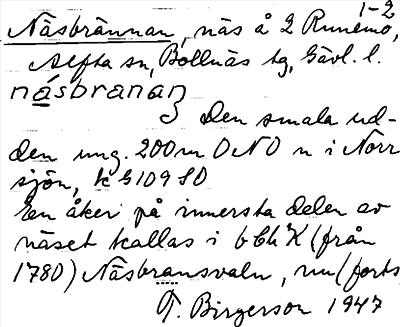 1-2
Näsbrännan, näs å 2 Runemo,
Alfta sn, Bollnäs tg, Gävl. l.
násbranaŋ
Den smala ud-
den ung. 200 m ONO n i Norr
sjön, k G 109 SO
En åker på innersta delen av
näset kallas i bChK (från
1780) Näsbransvaln, nu (forts
T. Birgerson 1947